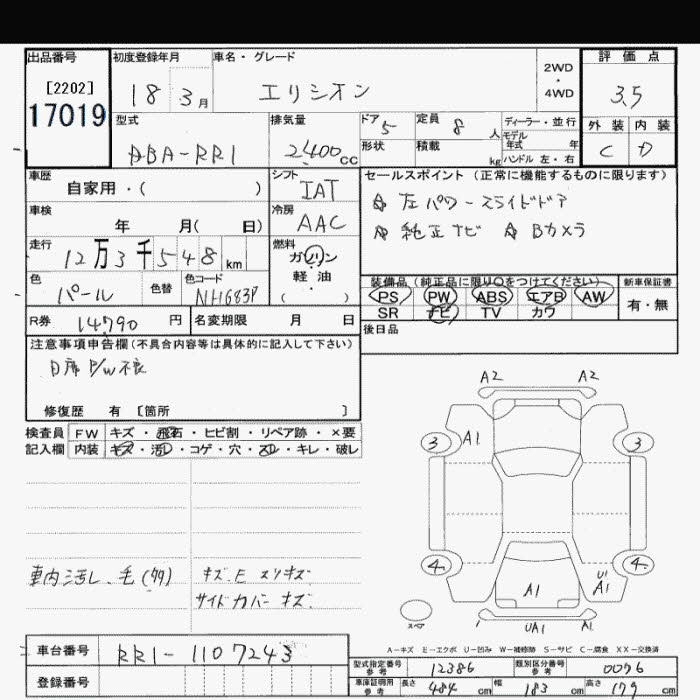 出品番号 初度登録年月 車名・グレード 2WD・4WD 評価点
[2202]
17019
18 3月 エリシオン 3.5
型式 排気量 ドア 定員 ディーラー・並行 外装 内装
DBA-RR1 2,400cc 5 8人 モデル年式 年 C D
形状 積載 kg ハンドル 左・右
車歴 シフト セールスポイント(正常に機能するものに限ります)
自家用・( ) IAT ☆左パワースライドドア
車検 冷房
年 月( 日) AAC ☆純正ナビ ☆Bカメラ
走行 燃料
12万3千548km ガソリン・軽油
色 色替 色コード ( ) 装備品(純正品に限り○をつけてください) 新車保証書
パール NH683P PS PW ABS エアB AW 有・無
SR ナビ TV カワ
R券 14,790円 名変期限 月 日 後日品
注意事項申告欄(不具合内容等は具体的に記入して下さい)
D席P/W不良
修復歴 有 [箇所 ]
検査員 FW キズ・飛石・ヒビ割・リペア跡・×要
記入欄 内装 キズ・汚れ・コゲ・穴・スレ・キレ・破レ
A2 A2
3 A1 3
4 4
A1 U1 A1
スペア UA1 A1
車内汚し、毛(多) キズ、E スリキズ
サイドカバー キズ
A-キズ E-エクボ U-凹み W-補修跡 S-サビ C-腐食 XX-交換済
車台番号 RR1-1107243
型式指定番号参考 12386 類別区分番号参考 0076
登録番号
車庫証明用参考 長さ 484cm 幅 183cm 高さ 179cm